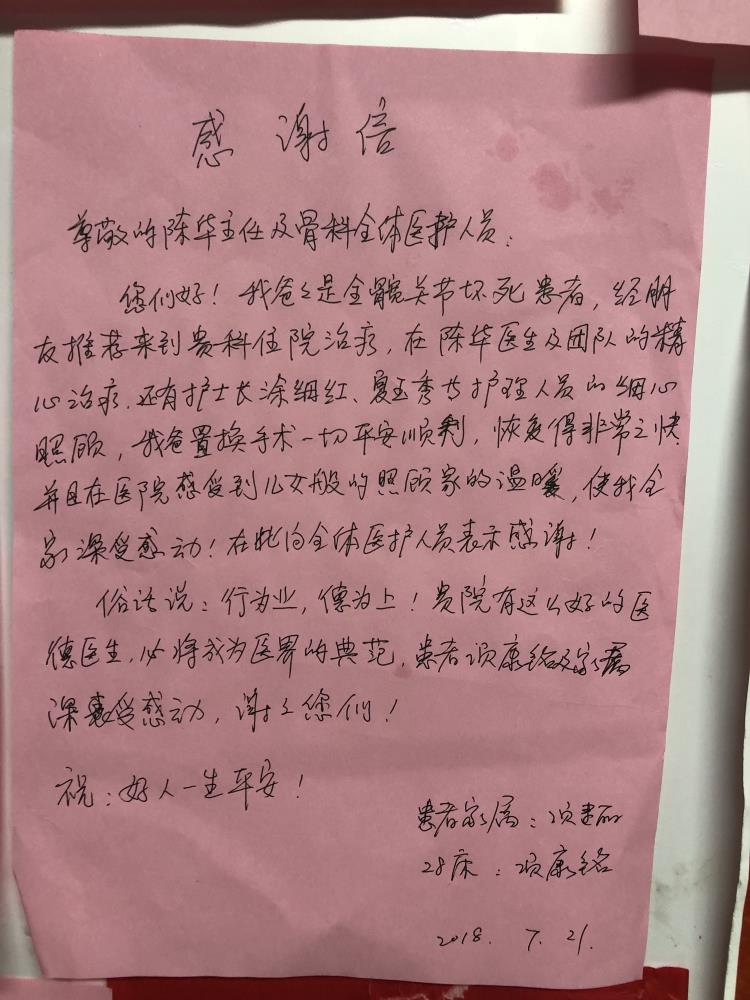 感谢信
尊敬的陈华主任及骨科全体医护人员：
您们好！我爸爸是全髋关节坏死患者，经朋
友推荐来到贵科住院治疗，在陈华医生及团队的精
心治疗，还有护士长涂细红、夏玉秀与护理人员的细心
照顾，我爸置换手术一切平安顺利，恢复得非常之快
并且在医院感受到儿女般的照顾家的温暖，使我全
家深受感动！在此向全体医护人员表示感谢！
俗话说：行为业，德为上！贵院有这么好的医
德医生，必将成为医界的典范，患者项康铭及家属
深受感动，谢谢您们！
祝：好人一生平安！
患者家属：项
28床：项康铭
2018. 7. 21.